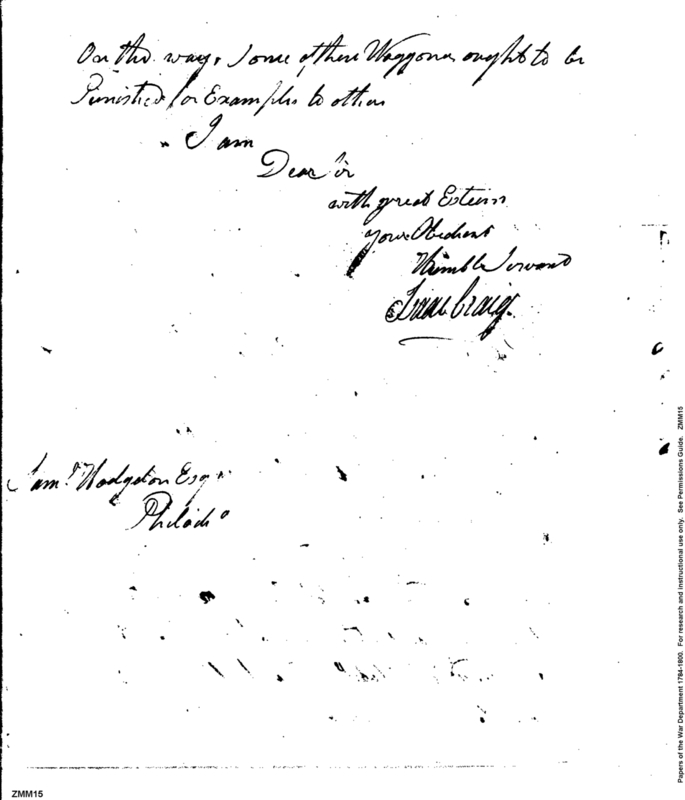 On the way, Some of these Waggoners ought to be
Punished for Examples to others
I am
Dear Sir
with great Esteem
your Obedient
Humble Servant
Isaac Craig.
Saml. Hodgdon Esqr
Philada
Papers of the War Department 1784-1800. For research and instructional use only. See Permissions Guide. ZMM15
ZMM15